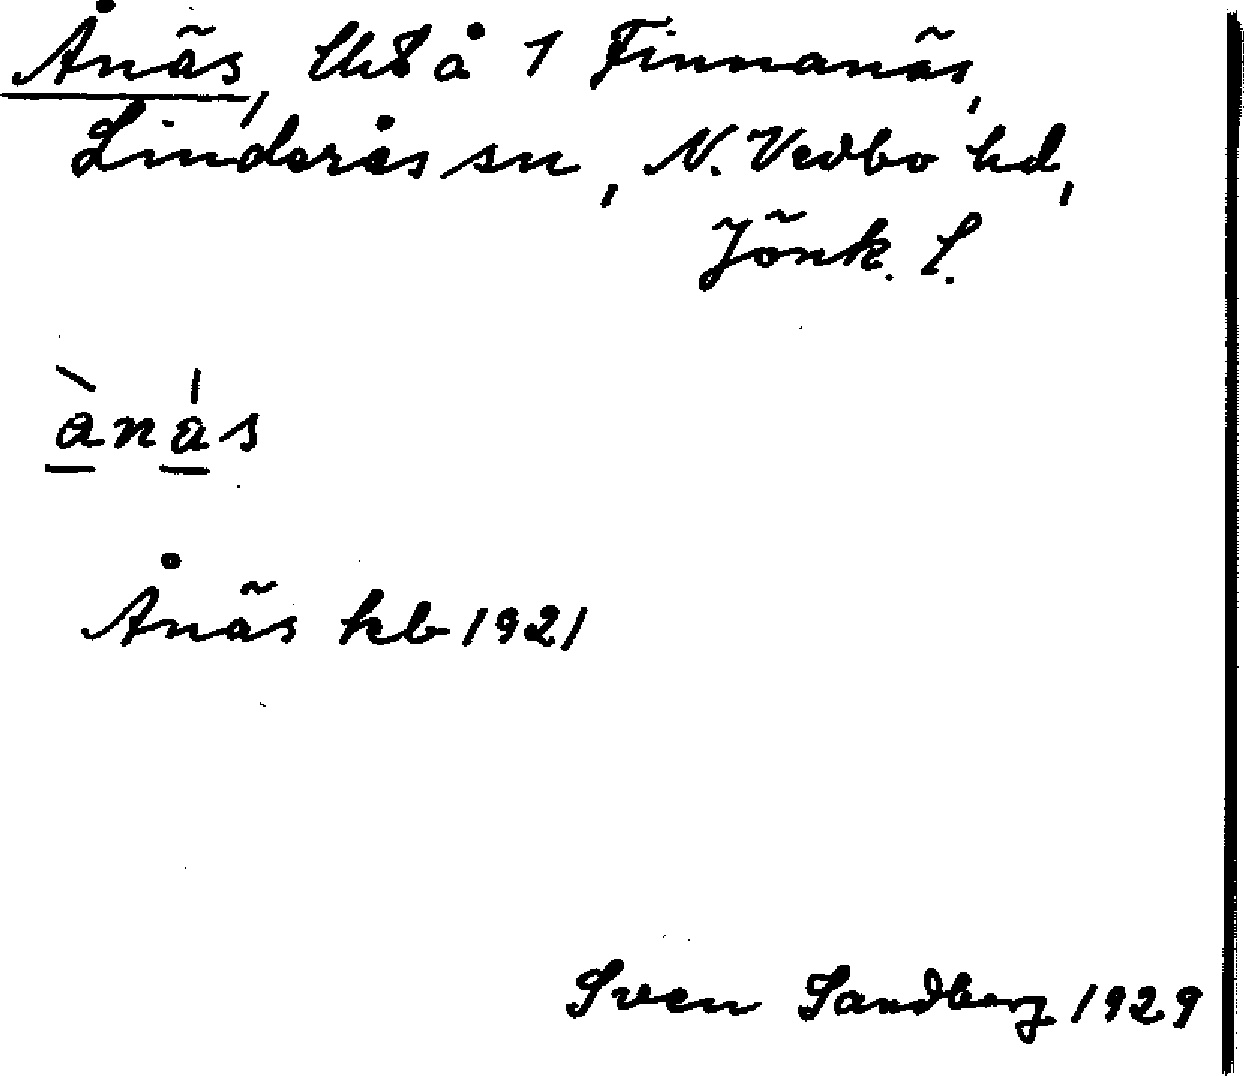 Ånäs, Uts å 1 Finnanäs,
Linderås sn, N. Vedbo hd,
Jönk. l.
ànás
Ånäs kb 1921
Sven Sandberg 1929